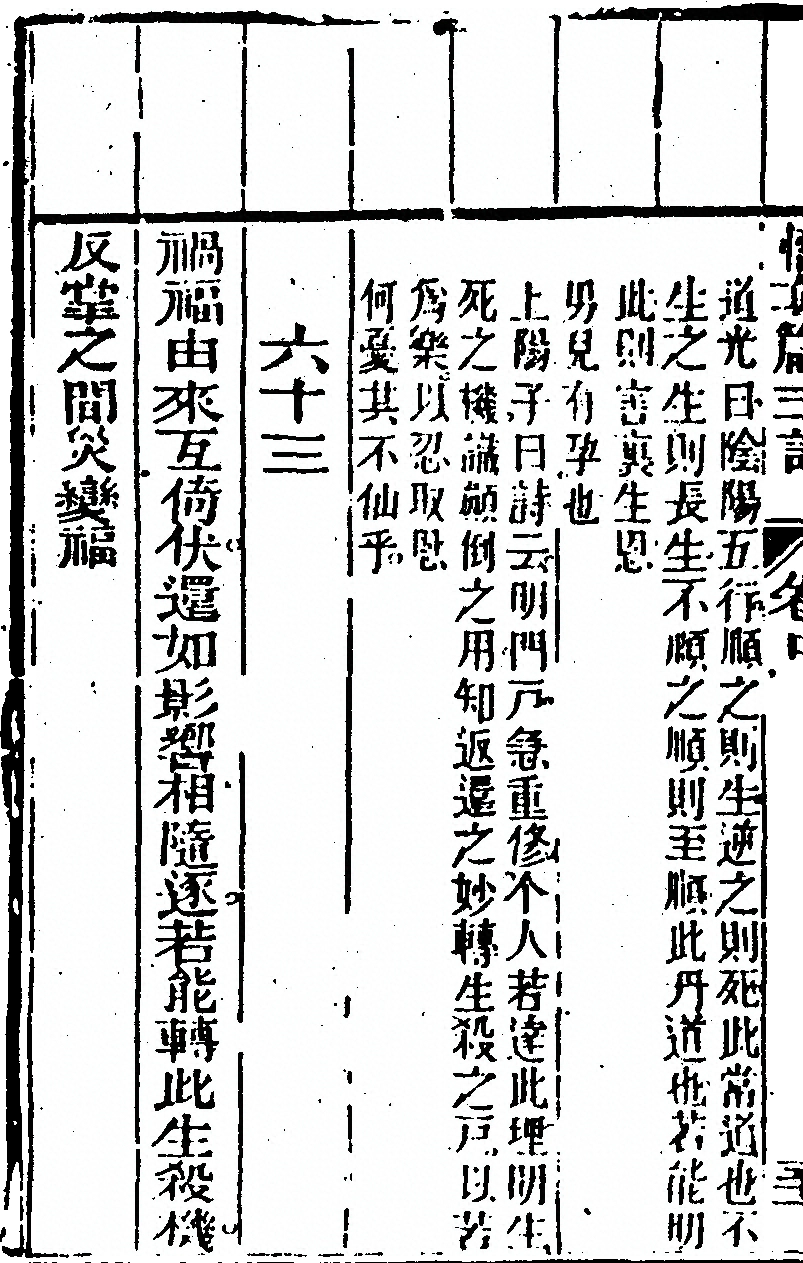 悟真篇三註 卷中 三
道光曰陰陽五行順之則生逆之則死此常道也不
生之生則長生不順之順則至順此丹道也若能明
此則害裏生恩
男兒有孕也
上陽子曰詩云明門戸急重修个人若達此理明生
死之機識顛倒之用知返還之妙轉生殺之戸以若
爲樂以忍取恩
何憂其不仙乎
六十三
禍福由來互倚伏還如影響相隨逐若能轉此生殺機
反掌之間災變福